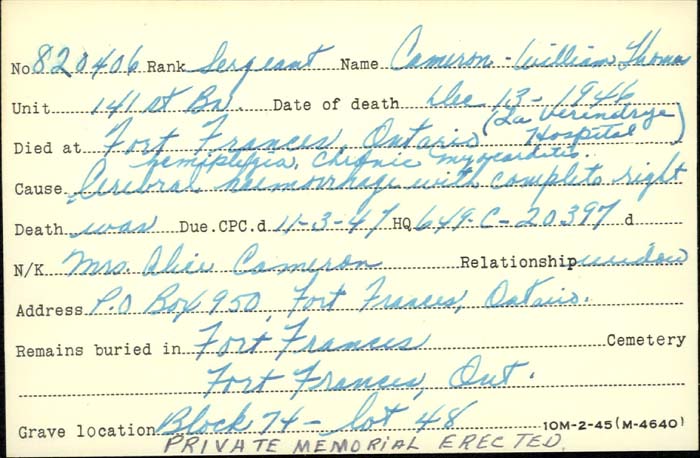 No 820406 Rank Sergeant Name Cameron - William Thomas
Unit 141 st Bn. Date of death Dec 13 - 1946
Died at Fort Frances, Ontario (La Verendrye Hospital)
hemiplegia, Chronic myocarditis.
Cause Cerebral haemorrhage with complete right
Death was Due. CPC.d 11-3-47 HQ 649-C-20397 d
N/K Mrs. Alice Cameron Relationship widow
Address P.O Box 950, Fort Frances, Ontario.
Remains buried in Fort Frances Cemetery
Fort Frances, Ont.
Grave location Block 74 - lot 48 10M-2-45 (M-4640)
PRIVATE MEMORIAL ERECTED.